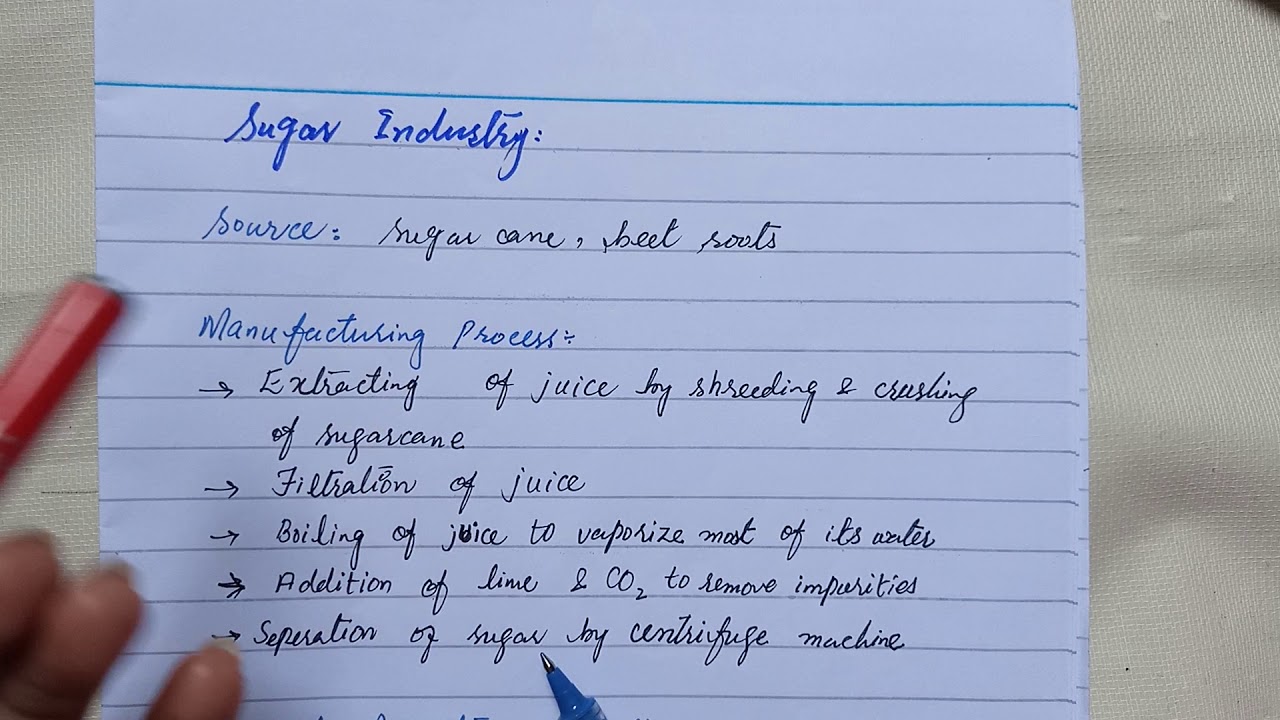 Sugar Industry:
Source: Sugar cane, beet roots
Manufacturing Process:-
→ Extracting of juice by shreeding & crushing
of sugarcane
→ Filtration of juice
→ Boiling of juice to vaporize most of its water
→ Addition of lime & CO₂ to remove impurities
→ Seperation of sugar by centrifuge machine